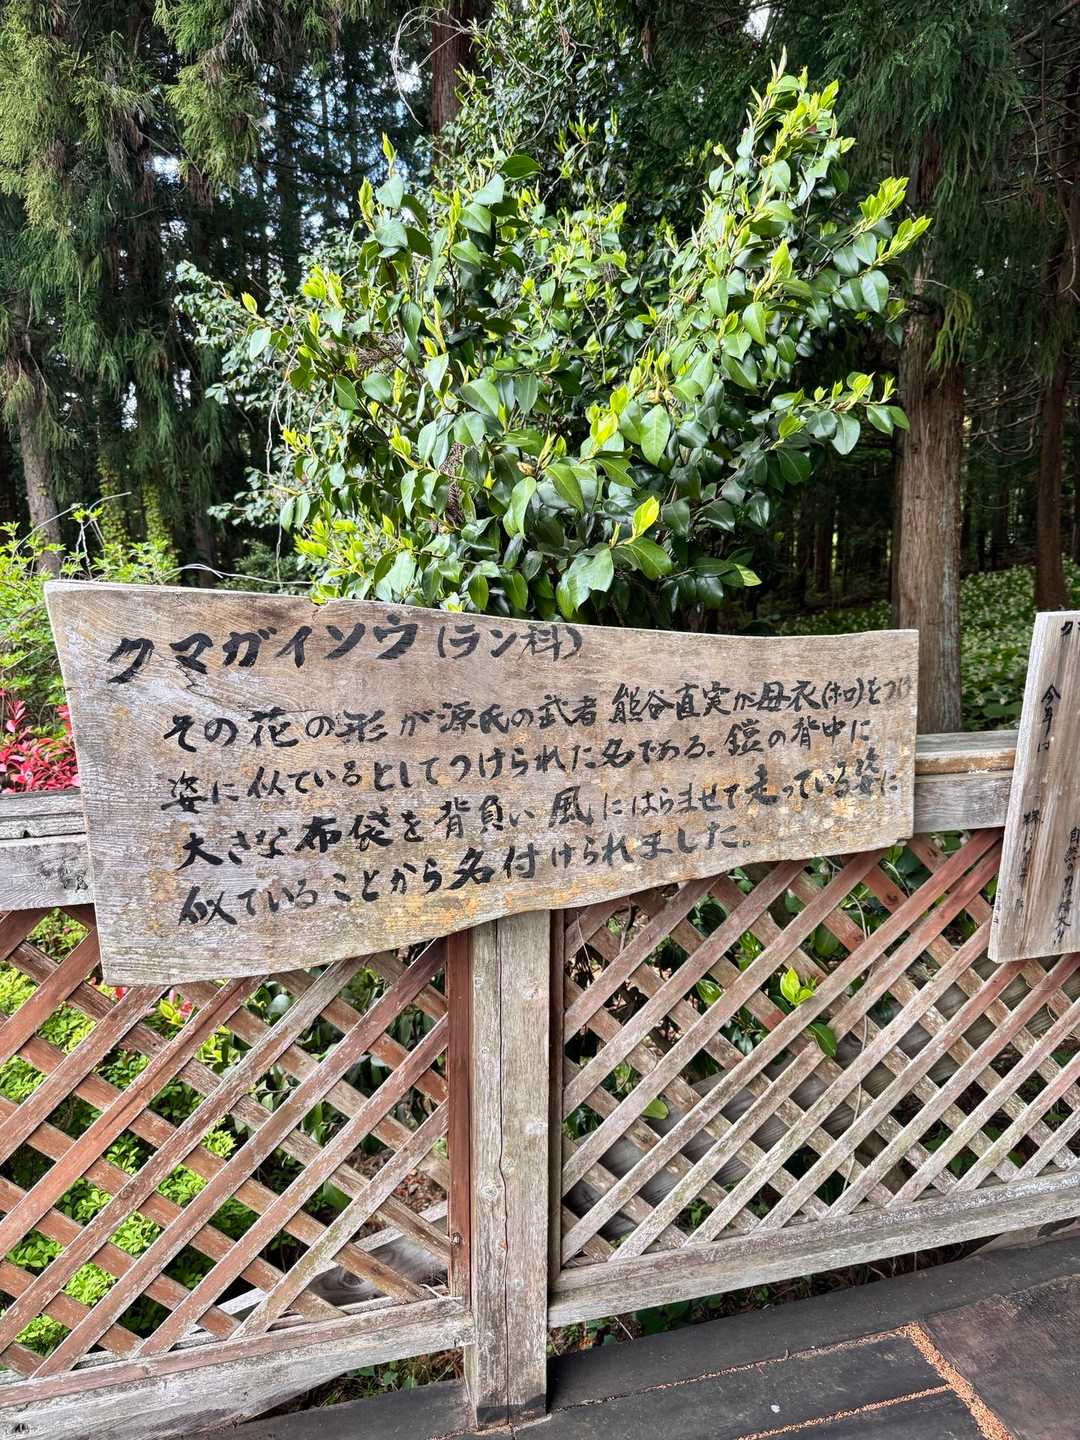 クマガイソウ(ラン科)
その花の形が源氏の武者 熊谷直実が母衣(ホロ)をつけ
姿に似ているとしてつけられた名である。鎧の背中に
大きな布袋を背負い風にはらませて走っている姿に
似ていることから名付けられました。
ク
今年は
自然の力